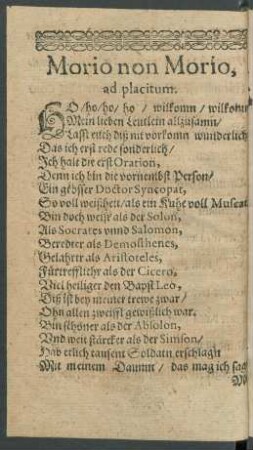 Morio non Morio,
ad placitum.
HO/ho/ho/ho / wilkomn / wilkomn
Mein lieben Leutlein allzusamn/
Lasst euch diß nit vorkomn wunderlich
Das ich erst rede sonderlich/
Ich halt die erst Oration,
Denn ich bin die vornembst Person/
Ein grösser Doctor Syncopar,
So voll weißheit/als ein Kuhe voll Muscat
Bin doch weisr als der Solun,
Als Socrates vnnd Salomon,
Beredter als Demosthenes,
Gelahrtr als Aristoteles,
Fürtrefflichr als der Cicero,
Viel heiliger den Bapst Leo,
Diß ist bey meiner trewe zwar/
Ohn allen zweiffl gewißlich war.
Bin schöner als der Absolon,
Vnd weit stärcker als der Simson/
Hab etlich tausent Soldatn erschlagn
Mit meinem Daumn / das mag ich sag